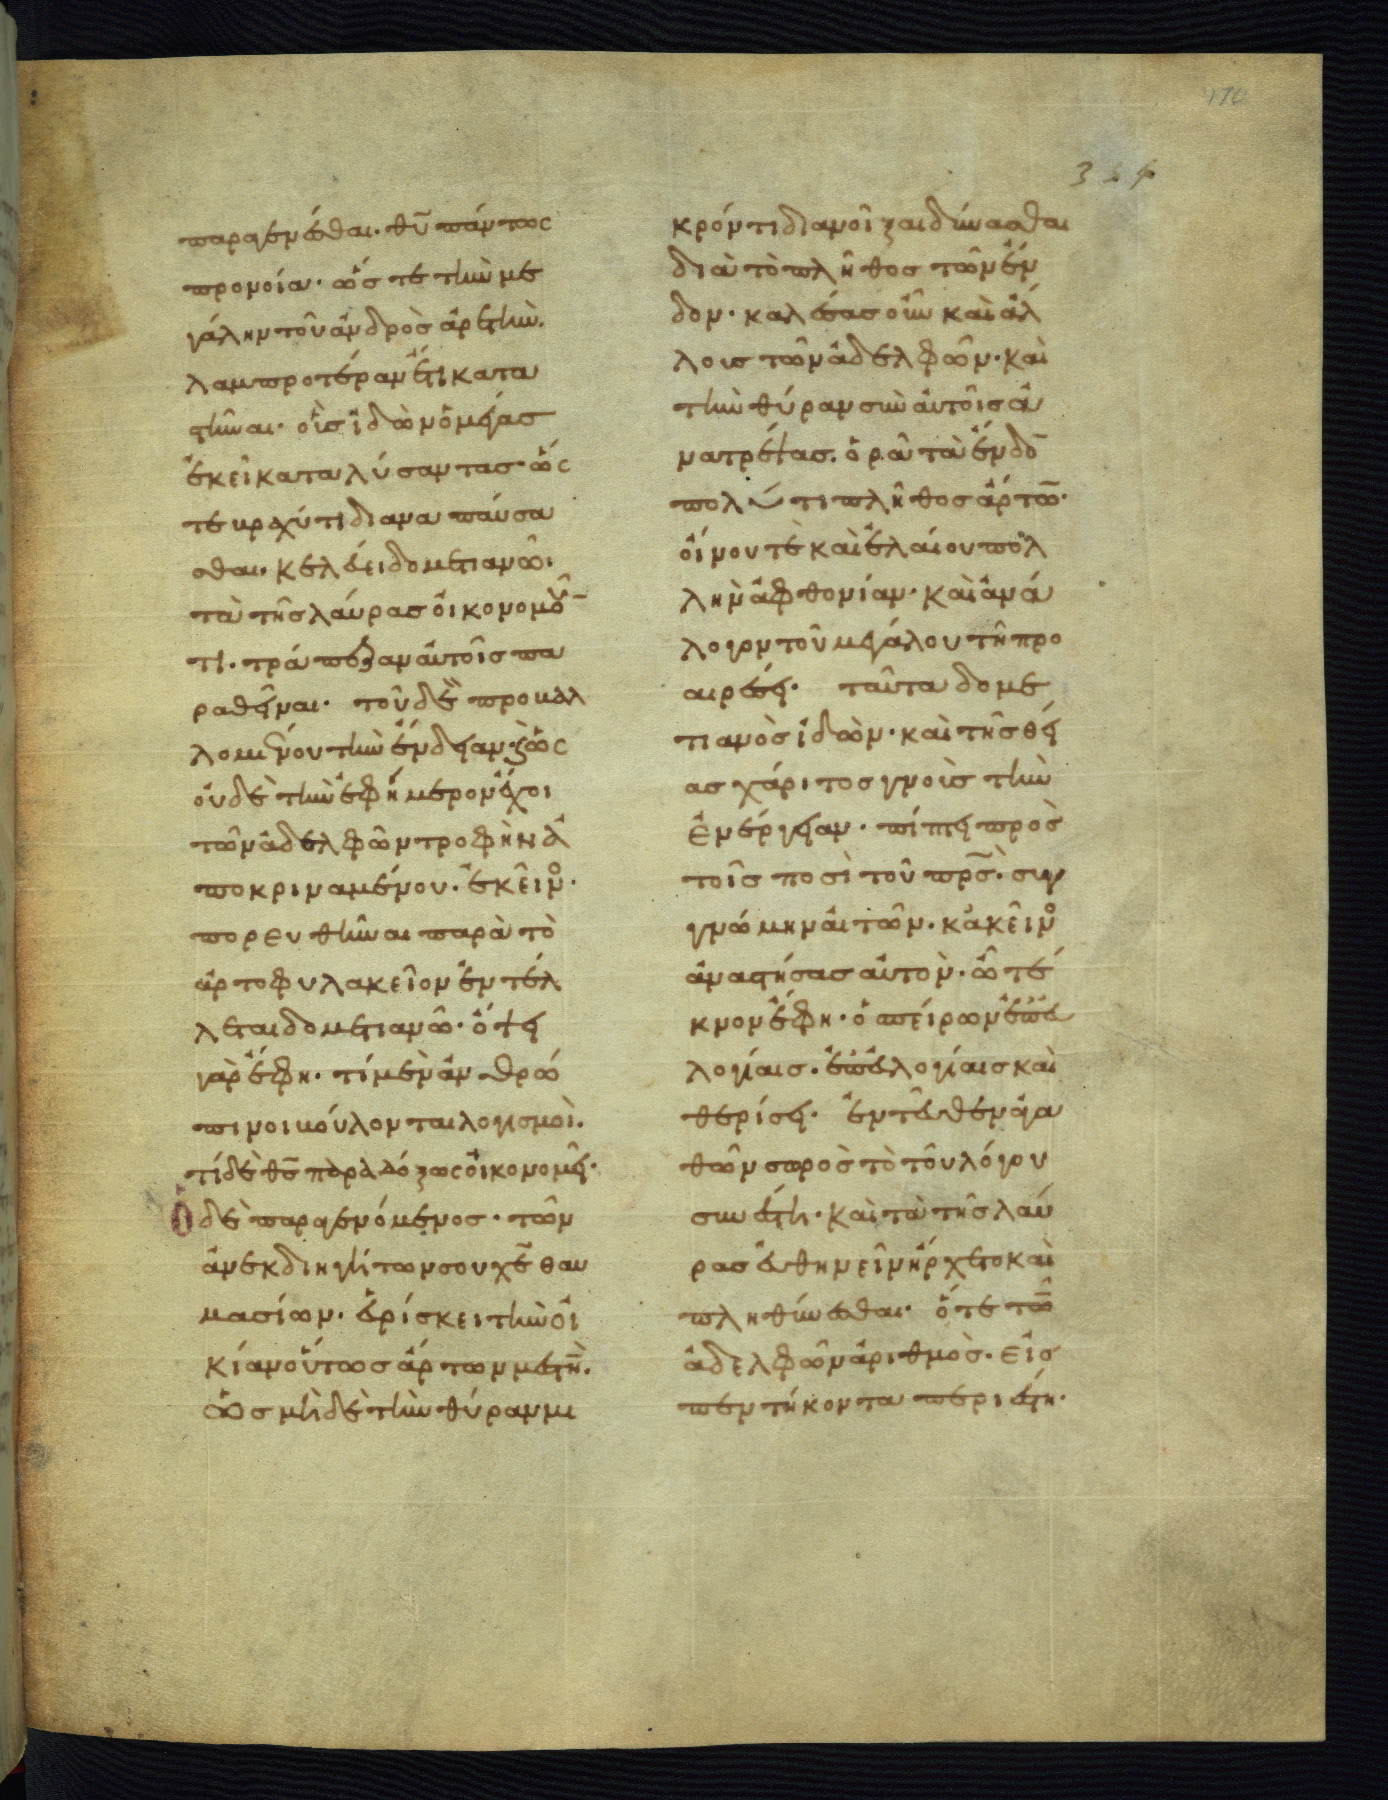 170
παραγενέσθαι. θῦ πάντως
προνοία. ὥς τε τὴν με
γάλην τοῦ ἀνδρὸς ἀρετὴν.
λαμπροτέραν ἔτι κατα
στῆναι. οὓς ἰδὼν ὁ μέγας
ἐκεῖ καταλύσαντας. ὥς
τε βραχύ τι διαναπαύσα
σθαι. κελεύει δομετιανῶ.
τὰ τῆς λαύρας οἰκονομοῦ
τι. τράπεζαν αὐτοῖς πα
ραθεῖναι. τοῦ δὲ προβαλ
λομένου τὴν ἔνδειαν. καὶ ὡς
οὐδὲ τὴν ἐφήμερον ἔχοι
τῶν ἀδελφῶν τροφὴν ἀ
ποκριναμένου. ἐκεῖνος.
πορευθῆναι παρὰ τὸ
ἀρτοφυλακεῖον ἐντέλ
λεται δομετιανῶ. ὄψει
γὰρ ἔφη. τί μὲν ἀνθρώ
πινοι βούλονται λογισμοὶ.
τί δὲ θς παραδόξως οἰκονομεῖ.
ὁ δὲ παραγενόμενος. τῶν
ἀνεκδιηγήτων σου χε θαυ
μασίων. εὑρίσκει τὴν οἰ
κίαν οὕτως ἄρτων μεστὴν.
ὡς μὴ δὲ τὴν θύραν μι
κρόν τι διανοῖξαι δύνασθαι
διὰ τὸ πλῆθος τῶν ἔν
δον. καλέσας οὖν καὶ ἄλ
λους τῶν ἀδελφῶν. καὶ
τὴν θύραν σὺν αὐτοῖς ἀ
νατρέψας. ὁρᾶ τὰ ἔνδο
πολύ τι πλῆθος ἄρτω.
οἴνου τὲ καὶ ἐλαίου πολ
λὴν ἀφθονίαν. καὶ ἀνά
λογον τοῦ μεγάλου τῆ προ
αιρέσει. ταῦτα δομε
τιανὸς ἰδὼν. καὶ τῆς θεί
ας χάριτος γνοὺς τὴν
ἐνέργειαν. πίπτει πρὸς
τοῖς ποσὶ τοῦ πρς. συγ
γνώμην αἰτῶν. κἀκεῖνος
ἀναστήσας αὐτὸν. ὦ τέ
κνον ἔφη. ὁ σπείρων ἐπ' εὐ
λογίαις. ἐπ' εὐλογίαις καὶ
θερίσει. ἐντεῦθεν ἀγα
θῶν πρὸς τὸ τοῦ λόγου
συνέβη. καὶ τὰ τῆς λαύ
ρας εὐθηνεῖν ἤρχετο καὶ
πληθύνεσθαι. ὅτε τῶ
ἀδελφῶν ἀριθμὸς. εἰς
πεντήκοντα περιέστη.